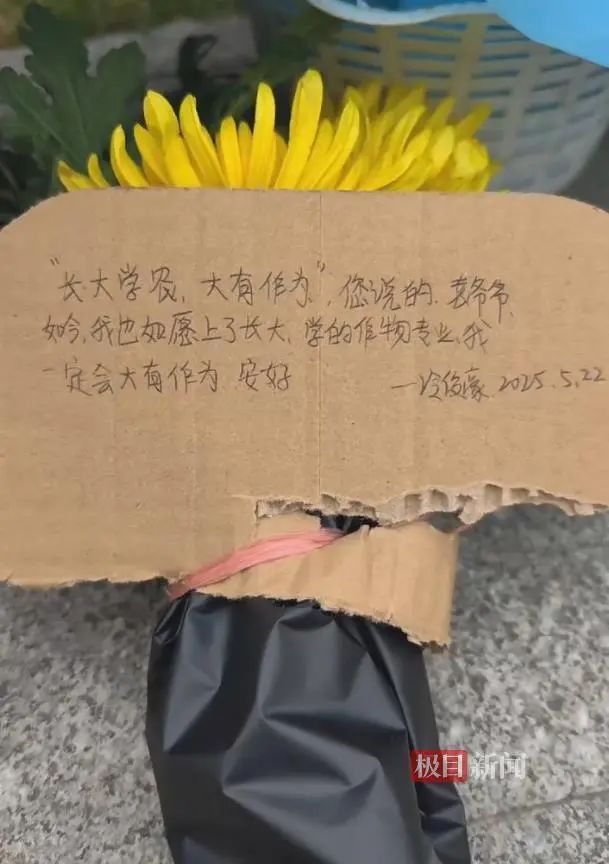 "长大学农,大有作为",您说的,袁爷爷,
如今,我也如愿上了长大,学的作物专业,我
一定会大有作为,安好
—冷俊豪 2025.5.22
极目新闻